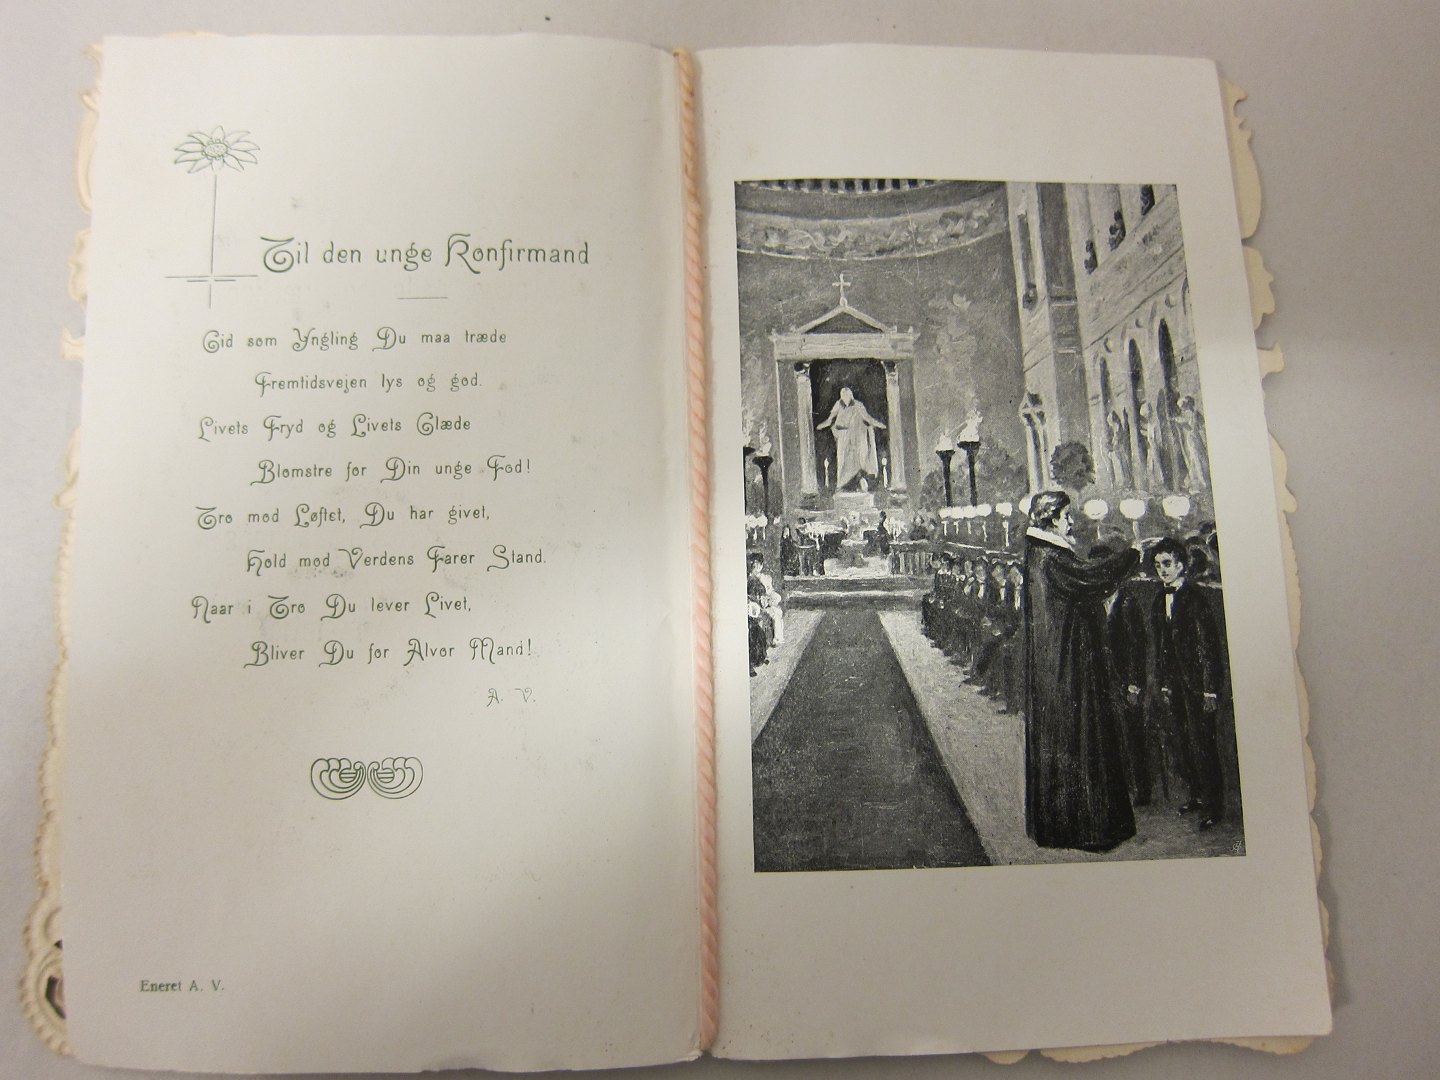 Til den unge Konfirmand
Gid som Yngling Du maa træde
Fremtidsvejen lys og god.
Livets Fryd og Livets Glæde
Blomstre for Din unge Fod!
Tro mod Løftet, Du har givet,
Hold mod Verdens Farer Stand.
Naar i Tro Du lever Livet,
Bliver Du for Alvor Mand!
A. V.
Eneret A. V.